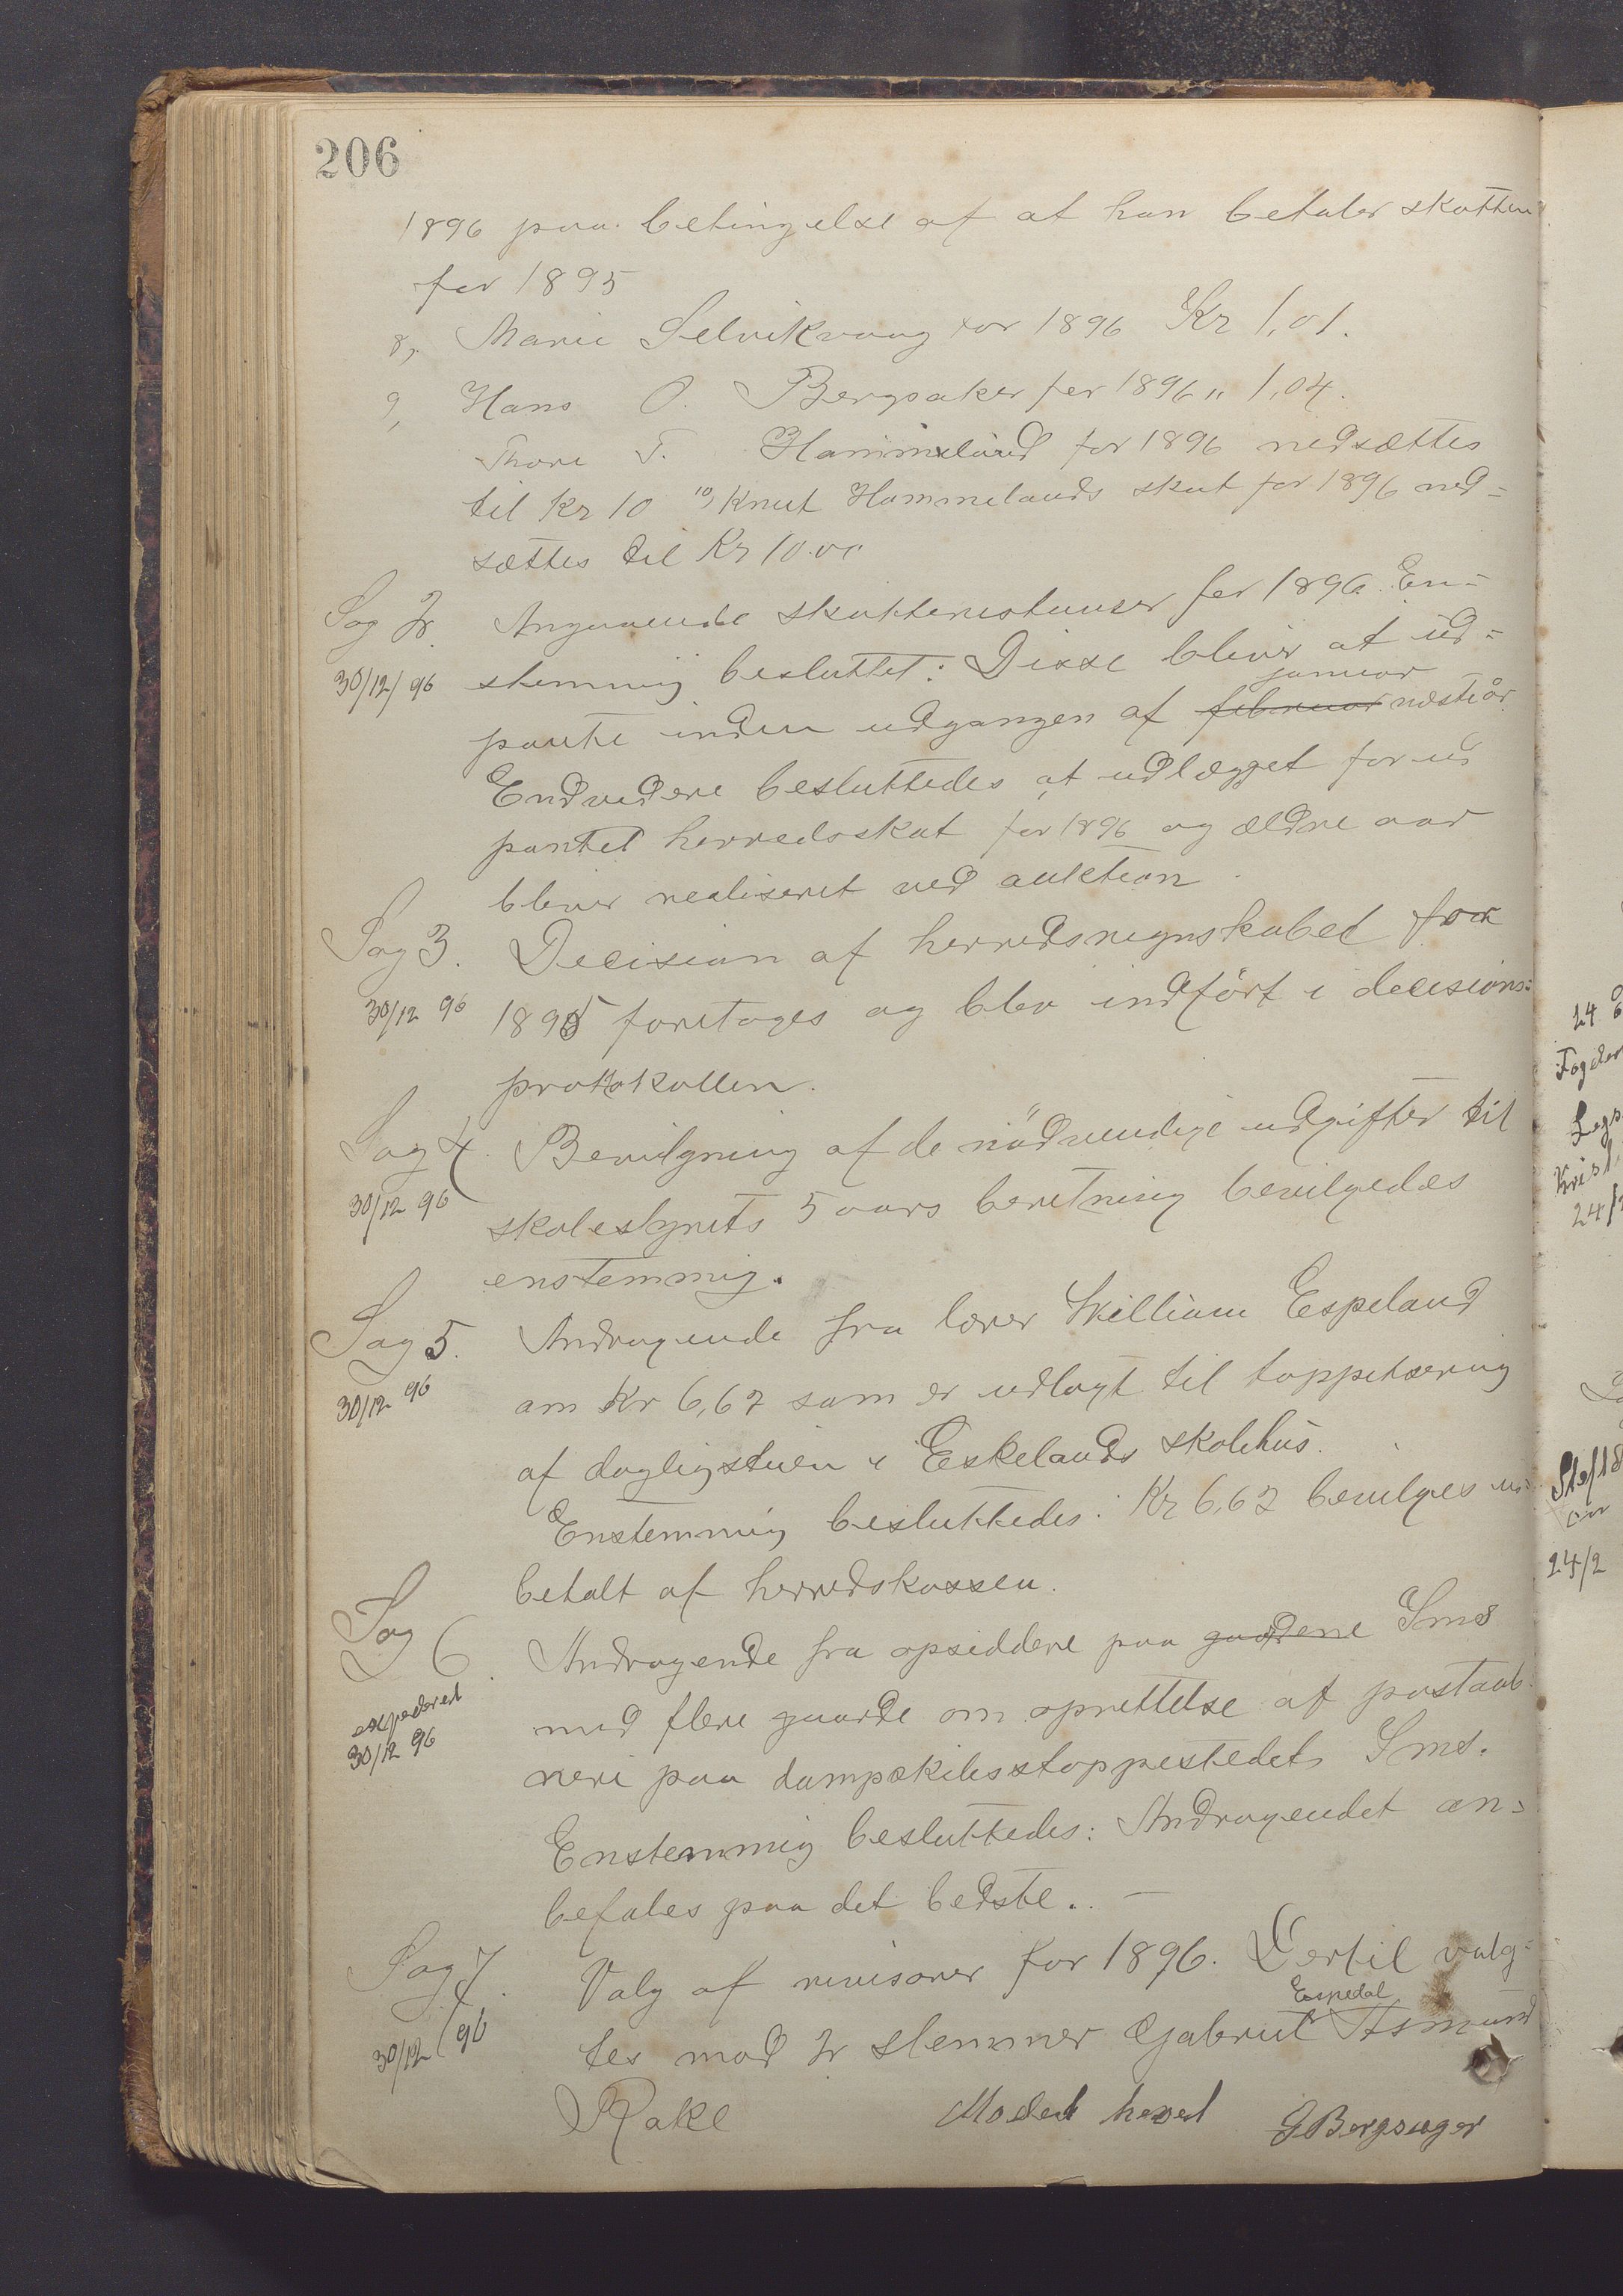 206
1896 paa betingelse af at han betaler skatten
for 1895
8, Marie Selvikvaag for 1896 Kr 1,01.
9, Hans O. Bergsaker for 1896 „ 1,04.
Thore T. Hammeland for 1896 nedsættes
til Kr 10 10, Knut Hammelands skat for 1896 ned=
sættes til Kr 10.00
Sag 2. Angaaende skatterestanser for 1896. En=
30/12/96 stemmig besluttet: Disse bliver at ud=
januar
pante inden udgangen af februar næsteår.
Endvidere besluttedes at udlægget for ud
pantet herredsskat for 1896 og ældre aar
bliver realiseret ved auktion.
Sag 3. Decision af herredsregnskabet for
30/12 96 1895 foretoges og blev indført i decisions=
protokollen.
Sag 4. Bevilgning af de nödvendige udgifter til
30/12 96 skolestyrets 5 aars beretning bevilgedes
enstemmig.
Sag 5. Andragende fra lærer William Espeland
30/12 96 om Kr 6,62 som er udlagt til toppetsering
af dagligstuen i Eskelands skolehus.
Enstemmig besluttedes: Kr 6,62 bevilges ud
betalt af herredskassen.
Sag 6. Andragende fra opsiddere paa gaardene Ims
expederet
30/12 96
med flere gaarde om oprettelse af postaab=
neri paa dampskibsstoppestedet Ims.
Enstemmig besluttedes: Andragendet an=
befales paa det bedste. —
Sag 7. Valg af revisorer for 1896. Dertil valg=
Espedal
30/12 96 tes mod 2 stemmer Gabriel Asmund
Rake Mødet hevet GBergsager
24
24/2